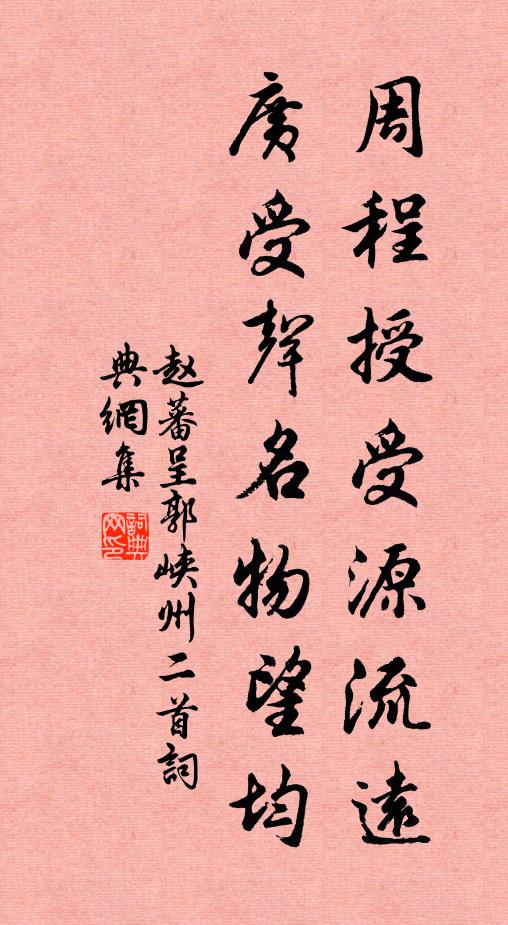 周程授受源流遠
廣受聲名物望均
赵蕃呈郭峡州二首詞
典網集
詞典网印